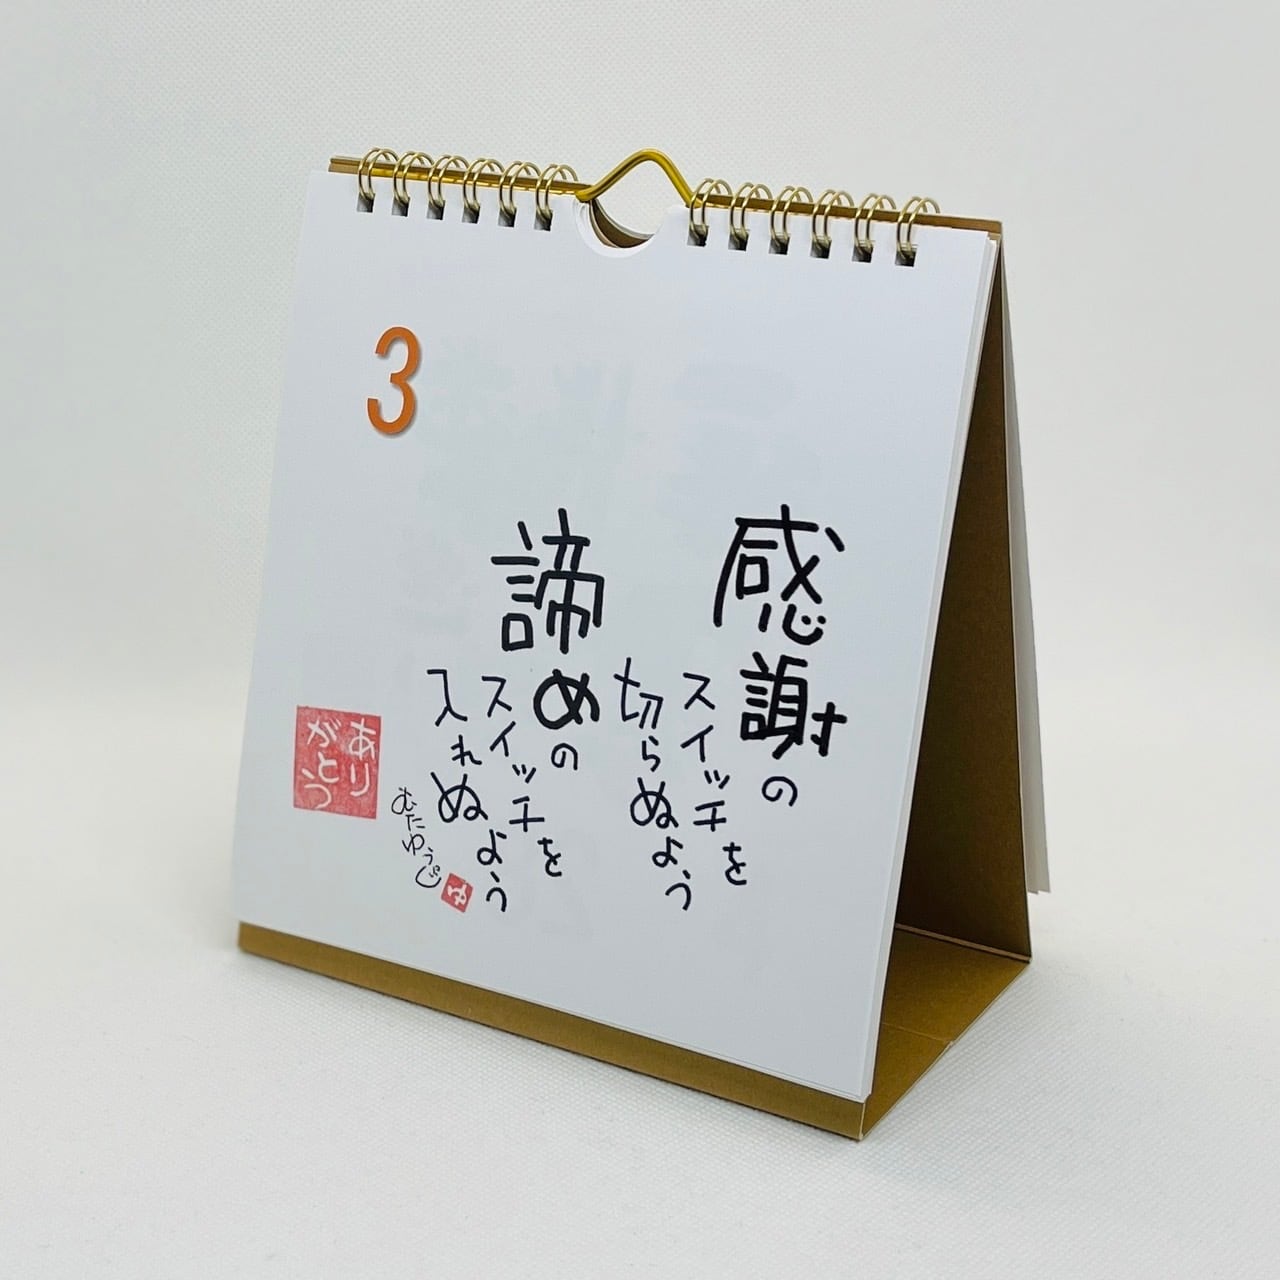 3
感謝の
スイッチを
切らぬよう
諦めの
スイッチを
入れぬよう
むたゆうじ
ゆ
あり
がとう